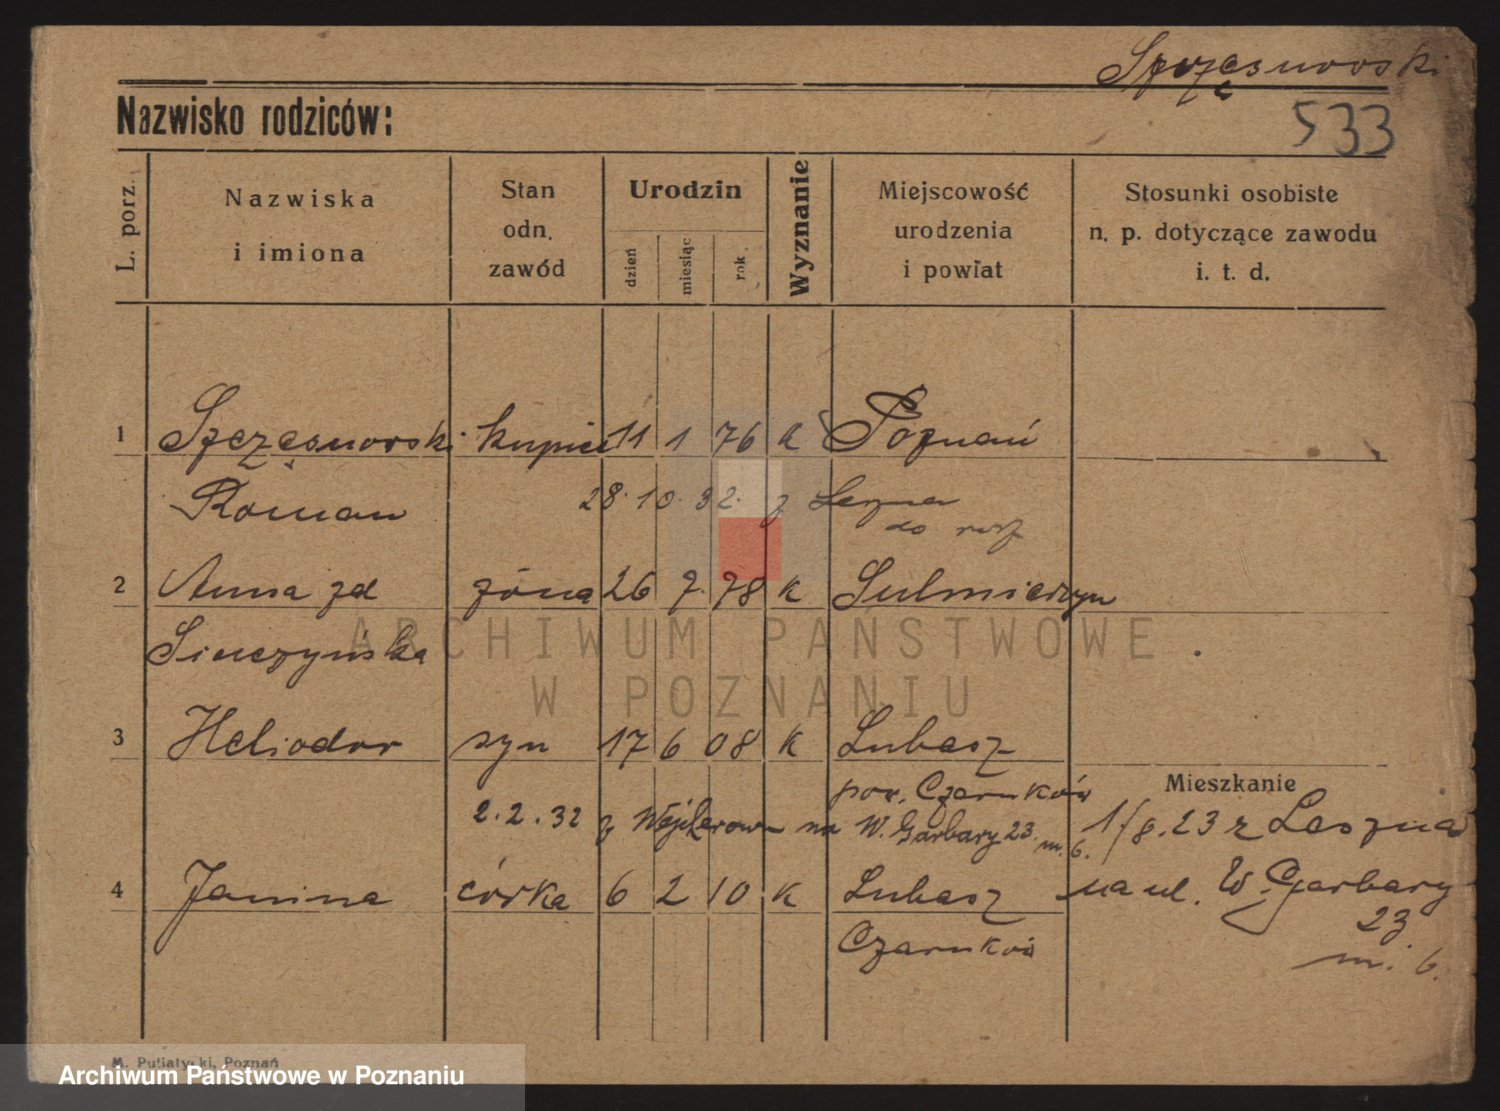 Szczęsnorski
Nazwisko rodziców:
533
L. porz.
Nazwiska
i imiona
Stan
odn.
zawód
Urodzin
dzień
miesiąc
rok
Wyznanie
Miejscowość
urodzenia
i powiat
Stosunki osobiste
n. p. dotyczące zawodu
i. t. d.
1 Szczęsnorski kupiec 11 1 76 k Poznań
Roman 28. 10. 32. z Leszna
do
2 Anna zd żona 26 7. 78 k Sulmierzyn
Simczyńska
3 Heliodor syn 17 6 08 k Lubasz
pow. Czarnków
Mieszkanie
2.2.32 z Wejherowa na W. Garbary 23. m. 6.
1/8.23 z Leszna
4 Janina córka 6 2 10 k Lubasz
na ul. W. Garbary
23
m. 6.
Czarnków
ARCHIWUM PAŃSTWOWE
W POZNANIU
M. Putiatycki, Poznań
Archiwum Państwowe w Poznaniu